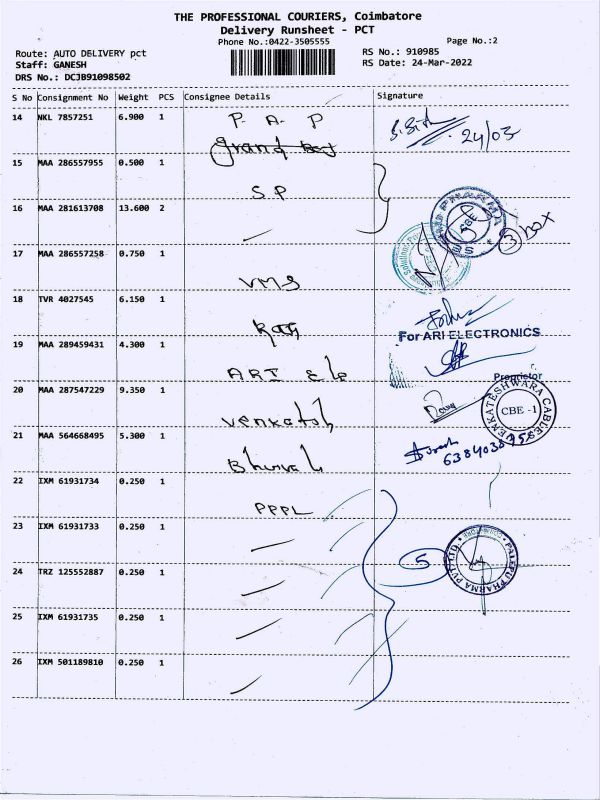 THE PROFESSIONAL COURIERS, Coimbatore
Delivery Runsheet - PCT
Phone No.:0422-3505555
Page No.:2
Route: AUTO DELIVERY pct
RS No.: 910985
Staff: GANESH
RS Date: 24-Mar-2022
DRS No.: DCJB91098502
S No Consignment No Weight PCS Consignee Details Signature
14 NKL 7857251 6.900 1 P. A. P
24/03
15 MAA 286557955 0.500 1 S.P
16 MAA 281613708 13.600 2
3 box
17 MAA 286557258 0.750 1 VMS
18 TVR 4027545 6.150 1
For ARI ELECTRONICS
19 MAA 289459431 4.300 1 ARI Ele
Proprietor
20 MAA 287547229 9.350 1 Venkatesh
VENKATESHWARA CABLES
CBE -1
21 MAA 564668495 5.300 1
22 IXM 61931734 0.250 1 PPPL
23 IXM 61931733 0.250 1
5
PVT LTD.
24 TRZ 125552887 0.250 1
25 IXM 61931735 0.250 1
26 IXM 501189810 0.250 1